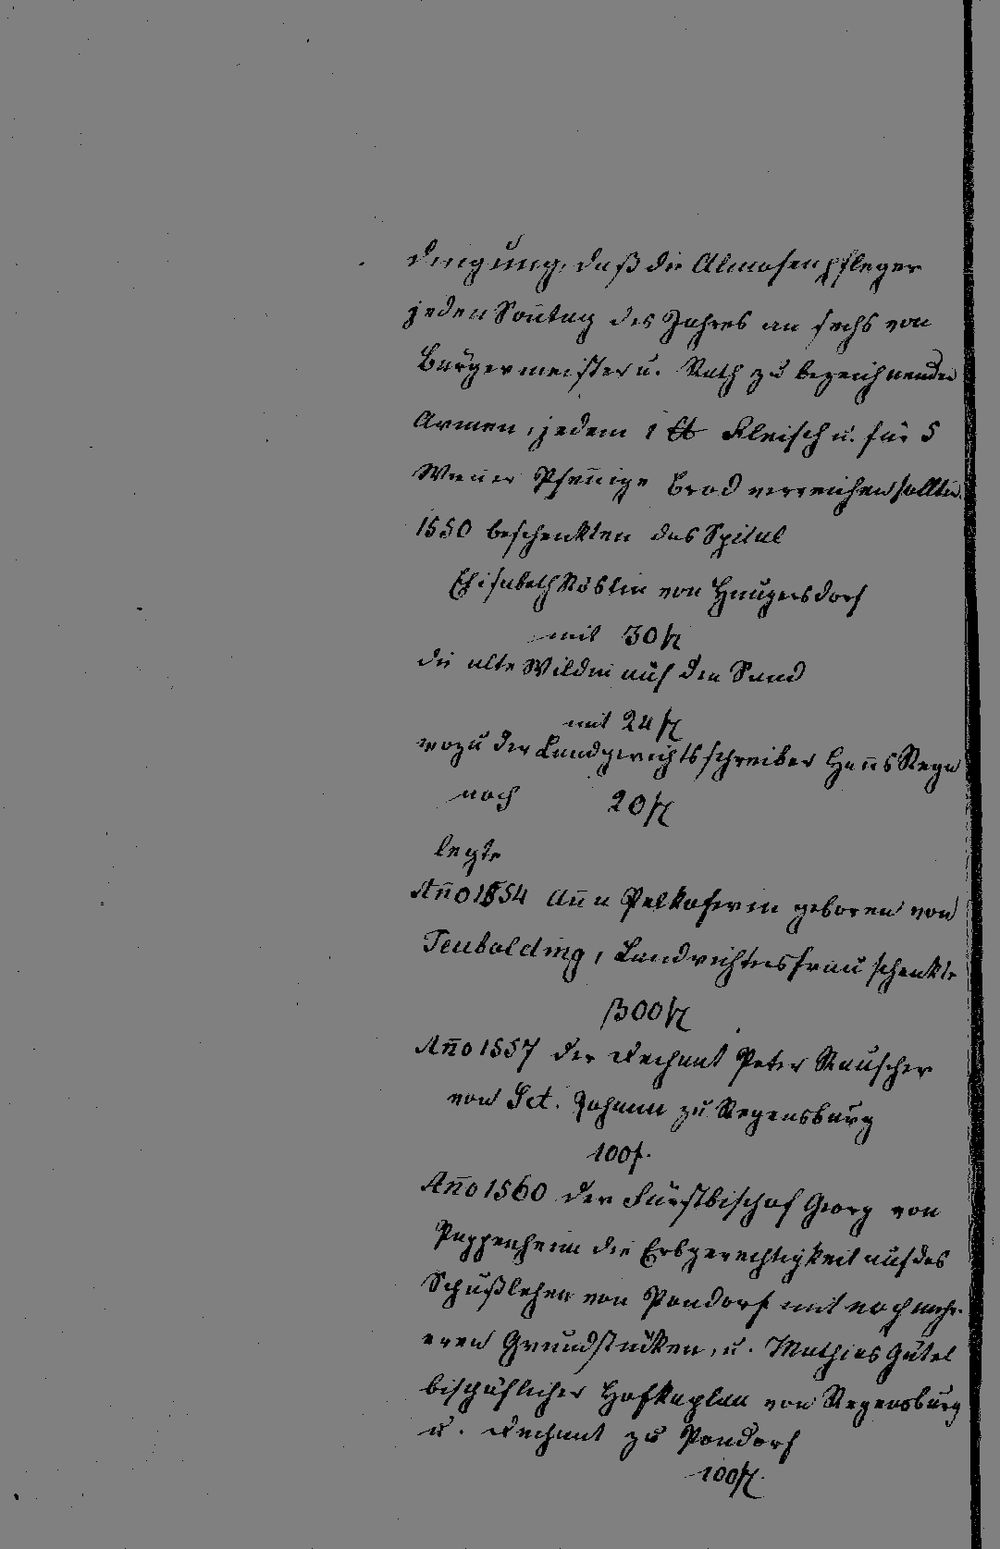 dingung, daß die Almosenpfleger
jeden Son̄tag des Jahres an sechs von
Bürgermeister u. Rath zu bezeichnenden
Armen, jedem 1 ℔ Fleisch u. für 5
Wiener Pfen̄ige Brod verreichen sollten.
1550 beschenkten das Spital
Elisabeth Röslin von Haugersdorf
mit 30 fl
die alte Wildin auf den Sand
mit 24 fl
wozu der Landgerichtsschreiber Han̄s
noch 20 fl
legte
An̄o 1554 An̄a Pelkoferin geboren von
Teubolding, Landrichtersfrau schenkte
300 fl
An̄o 1557 der Dechant Peter Rauscher
von Sct. Johann zu Regensburg
100 f.
An̄o 1560 der Fürstbischof Georg von
Pappenheim die Erbgerechtigkeit auf das
lehen von Pondorf mit noch mehr-
eren Grundstücken, u. Mathias Gütel
bischöflicher Hofkaplan von Regensburg
u. Dechant zu Pondorf
100 fl.